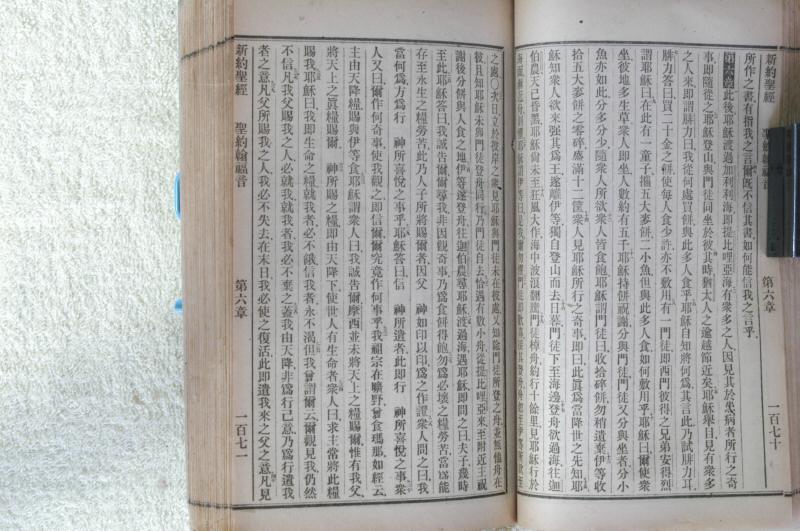 新約聖經　聖約翰福音　第六章　一百七十
所作之書、有指我之言、爾既不信其書、如何能信我之言乎、
第六章 此後耶穌渡過加利利海、即提比哩亞海、有衆多之人、因見其於患病者所行之奇
事、即隨從之、耶穌登山、與門徒同坐於彼、其時猶太人之逾越節近矣、耶穌舉目、見有衆多
之人來、即謂腓力曰、我從何處買餅、與此多人食乎、耶穌自知將何爲、其言此、乃試腓力耳、
腓力答曰、買二十金之餅、使每人食少許、亦不敷用、有一門徒、即西門彼得之兄弟安得烈、
謂耶穌曰、在此有一童子、攜五大麥餅、二小魚、但與此多人食、如何敷用乎、耶穌曰、爾使衆
坐、彼地多生草、衆人即坐、人數約有五千、耶穌持餅祝謝、分與門徒、門徒又分與坐者、分小
魚亦如此、分多分少、隨衆人所欲、衆人皆食飽、耶穌謂門徒曰、收拾碎餅、勿稍遺棄、伊等收
拾五大麥餅之零碎、盛滿十二筐、衆人見耶穌所行之奇事、即曰、此眞爲當降世之先知、耶
穌知衆人欲來強其爲王、遂離伊等、獨自登山而去、日暮、門徒下至海邊、登舟欲過海、往迦
伯農、天已昏黑、耶穌尚未至、狂風大作、海中波浪翻騰、門徒棹舟、約行十餘里、見耶穌行於
新約聖經　聖約翰福音　第六章　一百七一
之處、○次日、立於彼岸之衆、見耶穌與門徒未在彼處、又知除門徒所登之舟、並無他舟在
彼、且知耶穌未與門徒登舟同行、乃門徒自去、恰遇有數小舟、從提比哩亞來、至附近主祝
謝後分餅與人食之地、伊等遂登舟、往迦伯農尋耶穌、渡過海、遇耶穌、即問之曰、夫子幾時
至此、耶穌答曰、我誠告爾、爾尋我、非因觀奇事、乃爲食餅得飽、勿爲必壞之糧勞苦、當爲能
存至永生之糧勞苦、此乃人子所將賜爾者、因父　神如印以印爲之作證、衆人問之曰、我
當何爲、方爲行　神所喜悅之事乎、耶穌答曰、信　神所遣者、此即行　神所喜悅之事、衆
人又曰、爾作何奇事、使我觀之、即信爾、爾究竟作何事乎、我祖宗在曠野、曾食瑪那、如經云、
主由天降糧、賜與伊等食、耶穌謂衆人曰、我誠告爾、摩西並未將天上之糧賜爾、惟有我父、
將天上之眞糧賜爾、　神所賜之糧、即由天降下、使世人有生命者、衆人曰、求主常將此糧
賜我、耶穌曰、我即生命之糧、就我者必不餓、信我者永不渴、但我曾謂爾云、爾觀見我、仍然
不信、凡我父所賜我之人、必就我、就我者、我必不棄之、蓋我由天降、非爲行己意、乃爲行遣我
者之意、凡父所賜我之人、我必不失去、在末日、我必使之復活、此即遣我來之父之意、凡見